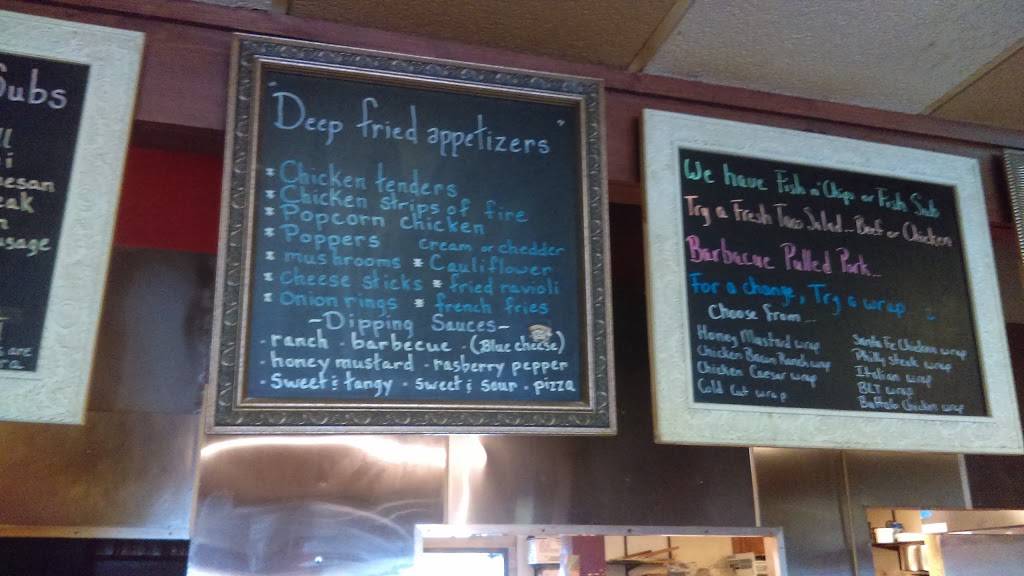 Subs
eak
usage
Deep fried appetizers
* Chicken tenders
* Chicken strips of fire
* Popcorn chicken
* Poppers cream or chedder
* mushrooms * Cauliflower
* Cheese sticks * fried ravioli
* Onion rings * french fries
~Dipping Sauces~
· ranch · barbecue · (Blue cheese)
honey mustard · rasberry pepper
· Sweet & tangy · sweet & sour · pizza
We have Fish n' Chips or Fish Sub
Try a Fresh Taco Salad... Beef or Chicken
Barbacue Pulled Pork...
For a change, Try a wrap...
Choose From...
Honey Mustard wrap
Chicken Bacon Ranch wrap
Chicken Caesar wrap
Cold Cut wrap
Santa Fe Chicken wrap
Philly steak wrap
Italian wrap
BLT wrap
Buffalo Chicken wrap